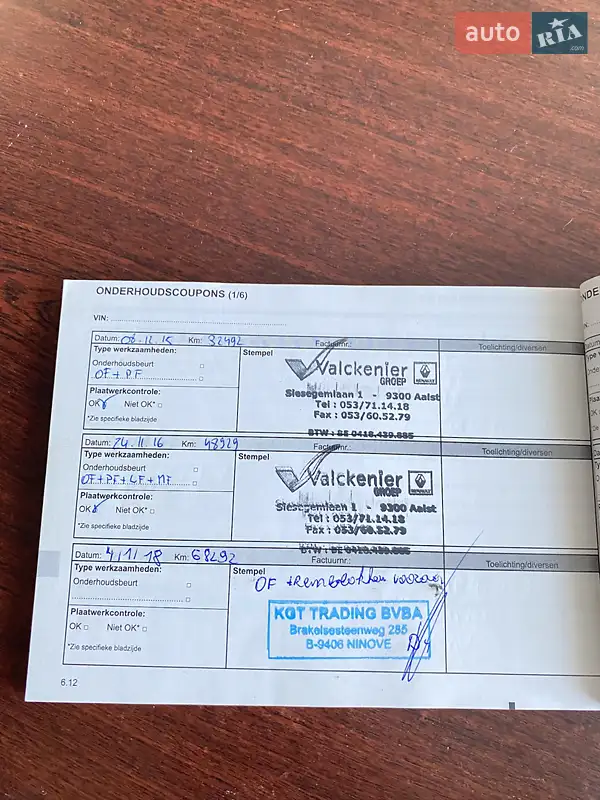 auto RIA.com
ONDERHOUDSCOUPONS (1/6)
VIN:
Datum: 08.12.15 Km: 32492 Factuurnr.: Toelichting/diversen
Type werkzaamheden:
Onderhoudsbeurt
OF + PF
Plaatwerkcontrole:
OK Niet OK*
*Zie specifieke bladzijde
Stempel
Valckenier
GROEP
RENAULT
Siesegemlaan 1 - 9300 Aalst
Tel : 053/71.14.18
Fax : 053/60.52.79
BTW : BE 0418.439.885
Datum: 24.11.16 Km: 48929 Factuurnr.: Toelichting/diversen
Type werkzaamheden:
Onderhoudsbeurt
OF + PF + LF + MF
Plaatwerkcontrole:
OK Niet OK*
*Zie specifieke bladzijde
Stempel
Valckenier
GROEP
Siesegemlaan 1 - 9300 Aalst
Tel : 053/71.14.18
Fax : 053/60.52.79
BTW : BE 0418.439.885
Datum: 4/1/18 Km: 68292 Factuurnr.: Toelichting/diversen
Type werkzaamheden:
Onderhoudsbeurt
Plaatwerkcontrole:
OK Niet OK*
*Zie specifieke bladzijde
Stempel
OF + remblokken vooraan
KGT TRADING BVBA
Brakelsesteenweg 285
B-9406 NINOVE
6.12